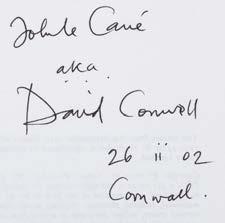 John le Carré
aka
David Cornwell
26 ii 02
Cornwall.